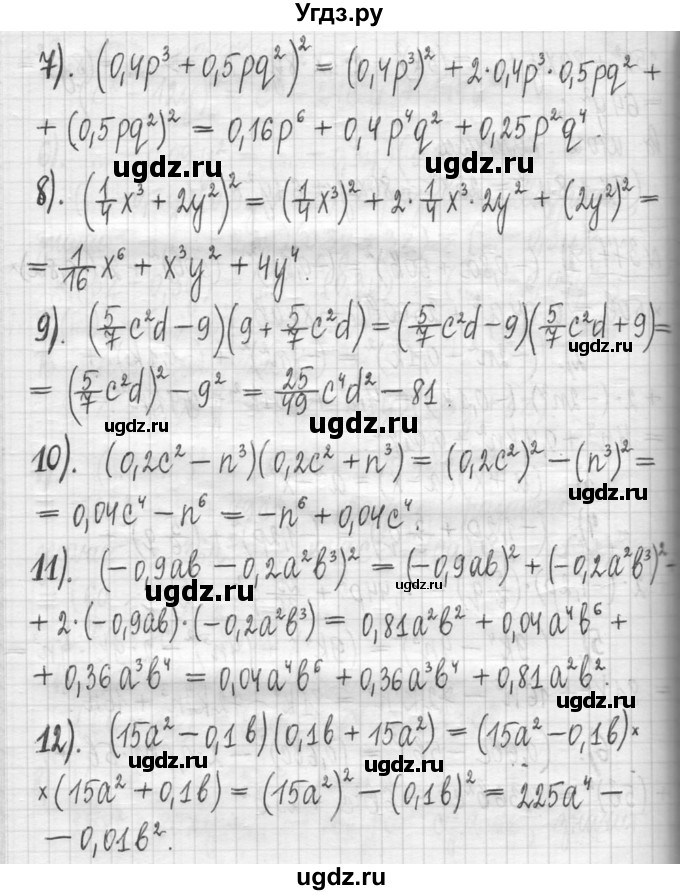 Угдз.ру
7). (0,4p³ + 0,5pq²)² = (0,4p³)² + 2·0,4p³·0,5pq² +
+ (0,5pq²)² = 0,16p⁶ + 0,4p⁴q² + 0,25p²q⁴.
ugdz.ru ugdz.ru
8). (1/4 x³ + 2y²)² = (1/4 x³)² + 2·1/4 x³·2y² + (2y²)² =
= 1/16 x⁶ + x³y² + 4y⁴.
9). (5/7 c²d – 9)(9 + 5/7 c²d) = (5/7 c²d – 9)(5/7 c²d + 9) =
ugdz.ru
= (5/7 c²d)² – 9² = 25/49 c⁴d² – 81.
ugdz.ru ugdz.ru
10). (0,2c² – n³)(0,2c² + n³) = (0,2c²)² – (n³)² =
ugdz.ru
= 0,04c⁴ – n⁶ = –n⁶ + 0,04c⁴.
11). (–0,9ab – 0,2a²b³)² = (–0,9ab)² + (–0,2a²b³)² –
ugdz.ru ugdz.ru
+ 2·(–0,9ab)·(–0,2a²b³) = 0,81a²b² + 0,04a⁴b⁶ +
+ 0,36a³b⁴ = 0,04a⁴b⁶ + 0,36a³b⁴ + 0,81a²b².
ugdz.ru
12). (15a² – 0,1b)(0,1b + 15a²) = (15a² – 0,1b)×
ugdz.ru ugdz.ru
×(15a² + 0,1b) = (15a²)² – (0,1b)² = 225a⁴ –
– 0,01b².
ugdz.ru